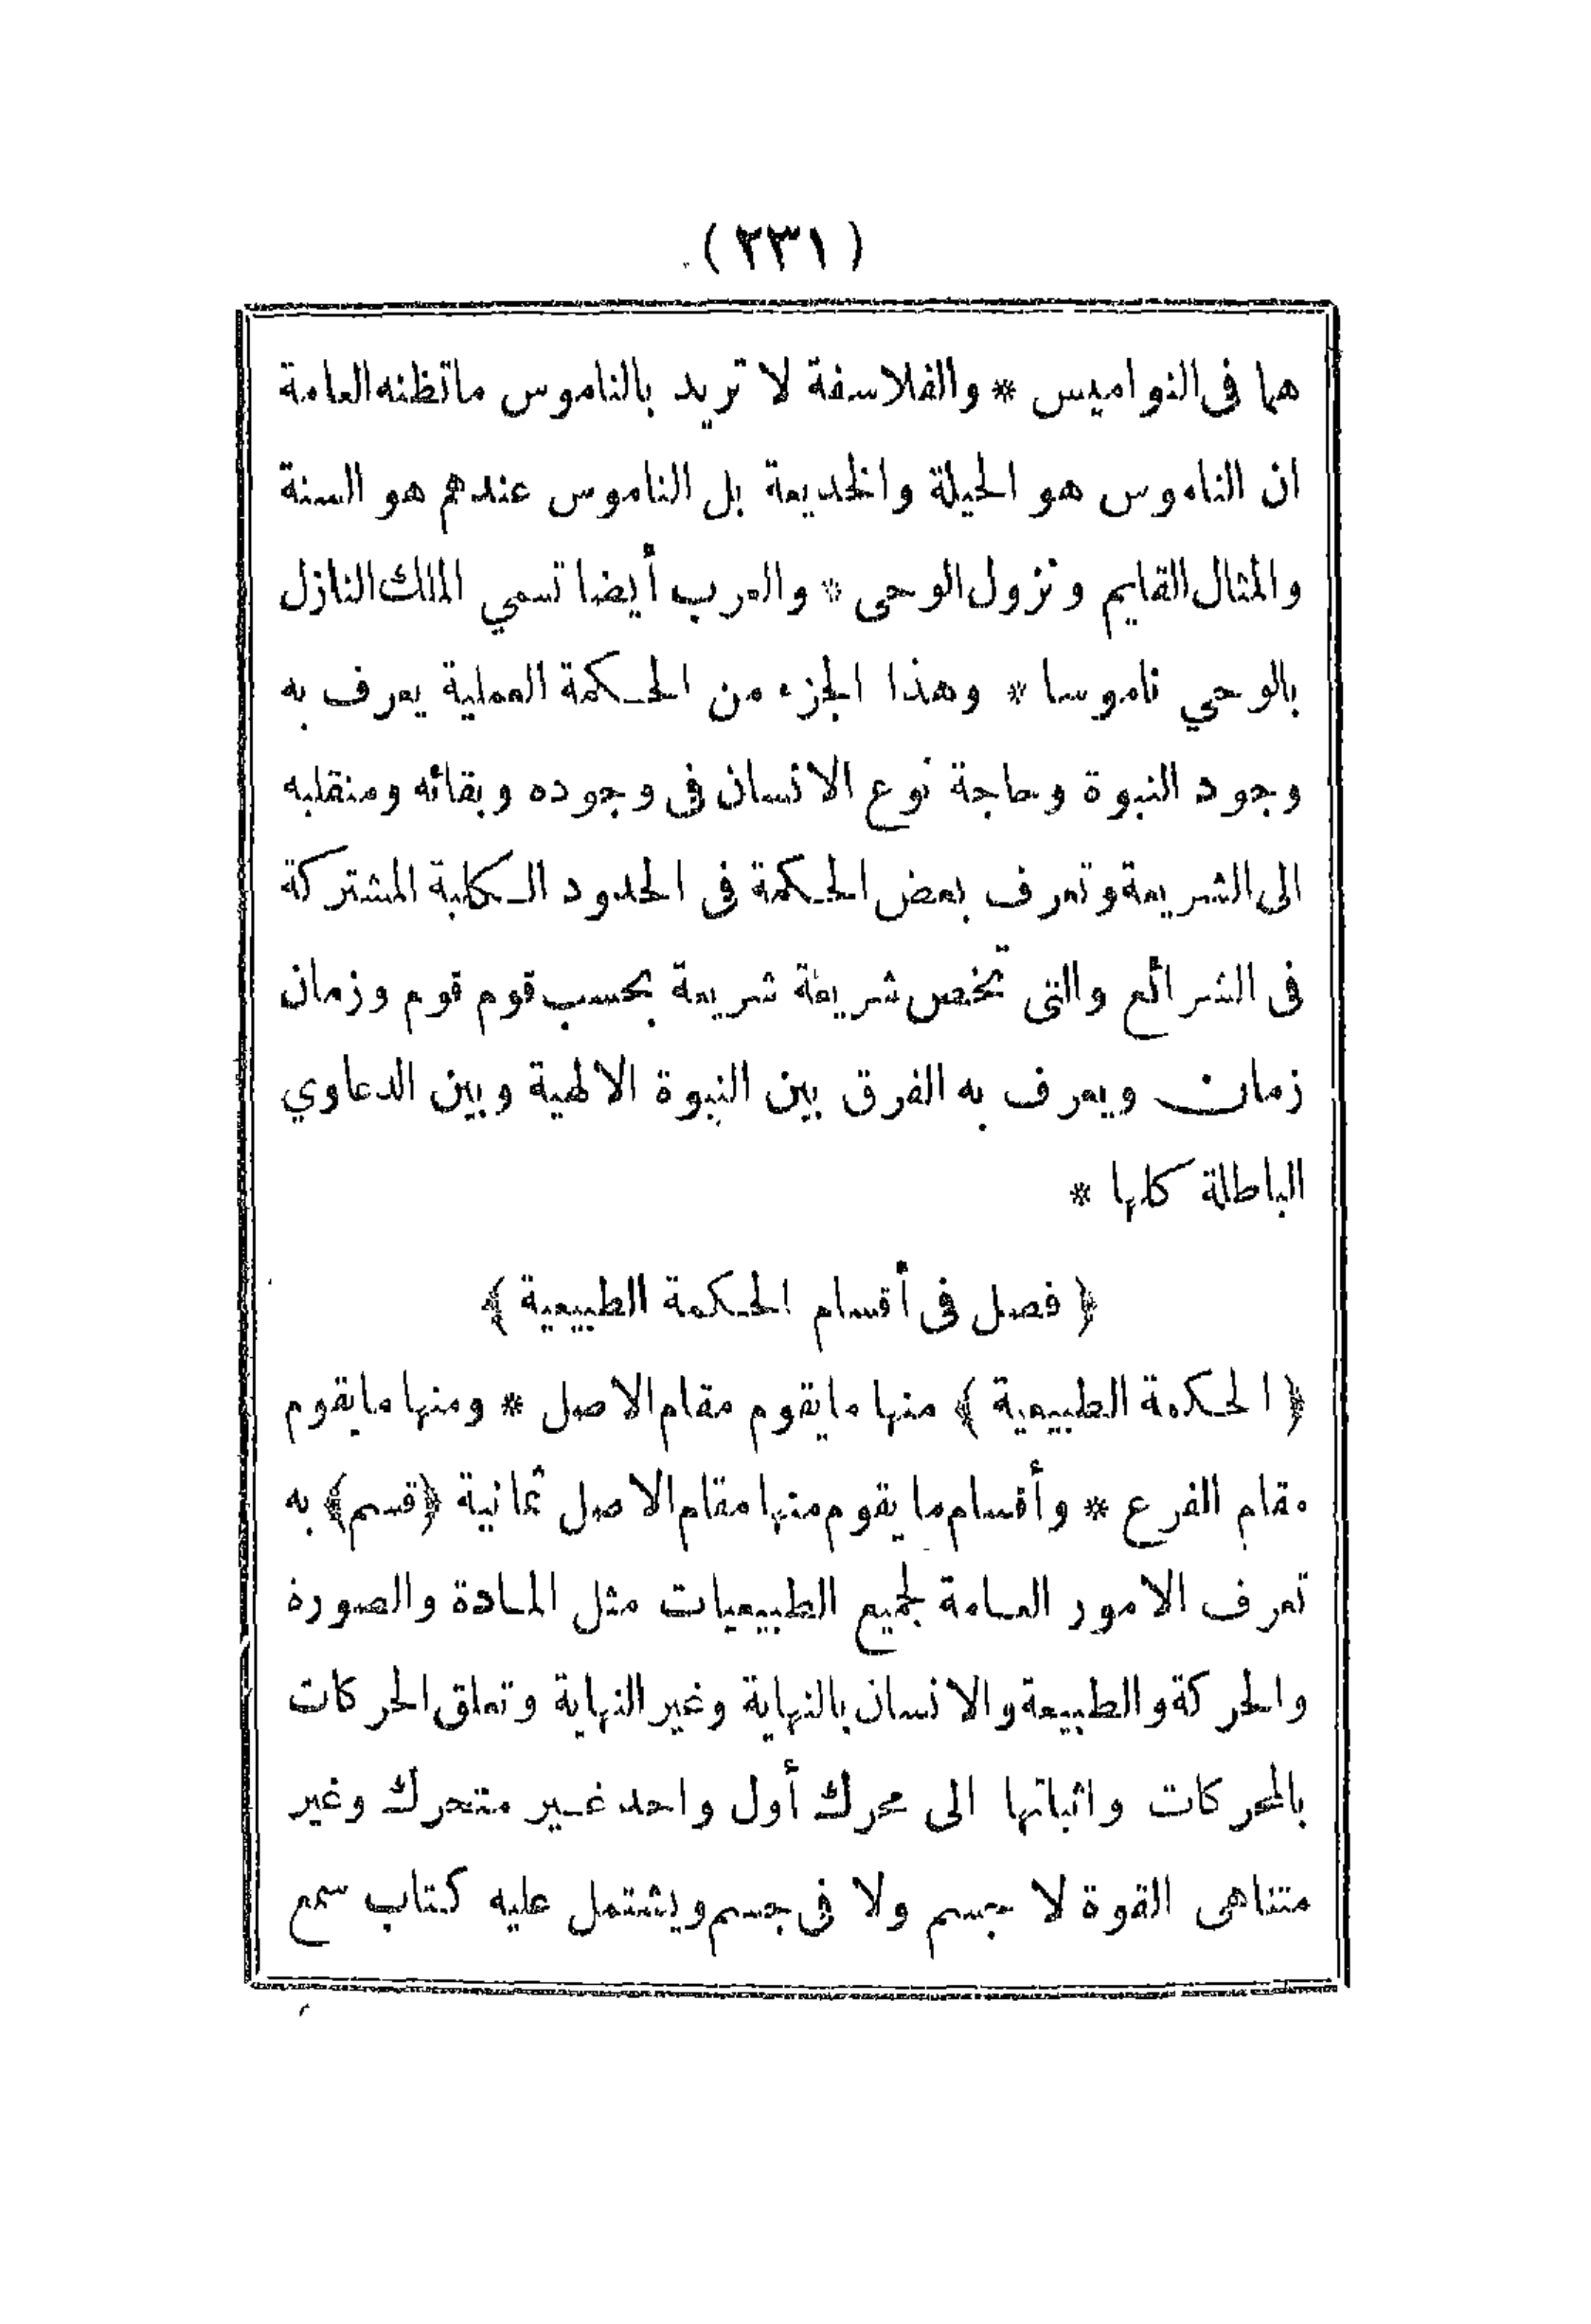 (٢٣١)
هما فى النواميس * والفلاسفة لا تريد بالناموس ماتظنه العامة
ان الناموس هو الحيلة والخديعة بل الناموس عندهم هو السنة
والمثال القايم ونزول الوحى * والعرب أيضا تسمي الملك النازل
بالوحي ناموسا * وهذا الجزء من الحكمة العملية يعرف به
وجود النبوة وحاجة نوع الانسان فى وجوده وبقائه ومنقلبه
الى الشريعة وتعرف بعض الحكمة فى الحدود الكلية المشتركة
فى الشرائع والتى تخص شريعة شريعة بحسب قوم قوم وزمان
زمان ويعرف به الفرق بين النبوة الالهية وبين الدعاوي
الباطلة كلها *
﴿ فصل فى أقسام الحكمة الطبيعية ﴾
﴿ الحكمة الطبيعية ﴾ منها مايقوم مقام الاصل * ومنها مايقوم
مقام الفرع * وأقسام ما يقوم منها مقام الاصل ثمانية ﴿قسم﴾ به
تعرف الامور العامة لجميع الطبيعيات مثل المادة والصورة
والحركة والطبيعة والانسان بالنهاية وغير النهاية وتعلق الحركات
بالمحركات واثباتها الى محرك أول واحد غير متحرك وغير
متناهى القوة لا جسم ولا فى جسم ويشتمل عليه كتاب سمع